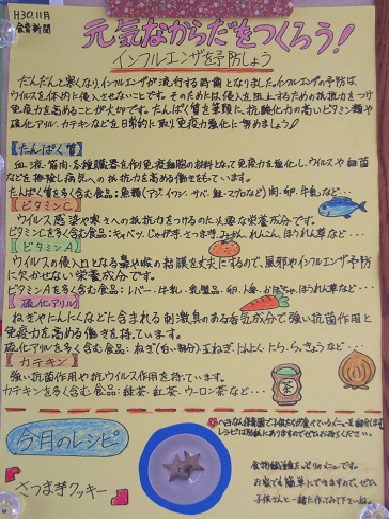 H30.11月
食育新聞
元気なからだをつくろう!
インフルエンザを予防しよう
だんだんと寒くなり、インフルエンザが流行する時期となりました。インフルエンザの予防は、
ウイルスを体内に侵入させないことです。そのためには侵入を阻止するための抵抗力をつけ
免疫力を高めることが大切です。たんぱく質を筆頭に、抗酸化力の高いビタミン類や
硫化アリル、カテキンなどを日常的に取り免疫力強化に努めましょう!
【たんぱく質】
血液・筋肉・各種臓器を作り免疫細胞の材料となって免疫力を強化し、ウイルスや細菌
などを排除し病気への抵抗力を高める働きをもっています。
たんぱく質を多く含む食品:魚類(アジ・イワシ・サバ・鮭・マグロなど)肉・卵・牛乳など…
【ビタミンC】
ウイルス感染や寒さへの抵抗力をつけるのに大事な栄養成分です。
ビタミンCを多く含む食品:キャベツ、じゃが芋、さつま芋、みかん、れんこん、ほうれん草など…
【ビタミンA】
ウイルスの侵入口となる鼻や喉の粘膜を丈夫にするので、風邪やインフルエンザ予防
に欠かせない栄養成分です。
ビタミンAを多く含む食品:レバー・牛乳・乳製品・卵・人参・かぼちゃ・ほうれん草など…
【硫化アリル】
ねぎやにんにくなどに含まれる刺激臭のある香気成分で強い抗菌作用と
免疫力を高める働きを持っています。
硫化アリルを多く含む食品:ねぎ(白い部分)玉ねぎ・にんにく・にら・らっきょうなど…
【カテキン】
強い抗菌作用や抗ウイルス作用を持ています。
カテキンを多く含む食品:緑茶・紅茶・ウーロン茶など…
茶
今月のレシピ
さつま芋クッキー
食物繊維たっぷりのメニューです。
お家でも簡単にできますので、ぜひ
子供さんと一緒に作ってみて下さいね。